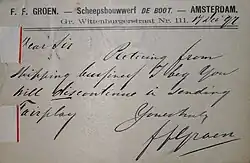 F. F. GROEN. — Scheepsbouwwerf DE BOOT. — AMSTERDAM.
Gr. Wittenburgerstraat Nr. 111.
Dear Sir
Retiring from
shipping business I beg you
will discontinue in sending
Fairplay
Yours truly
F F Groen